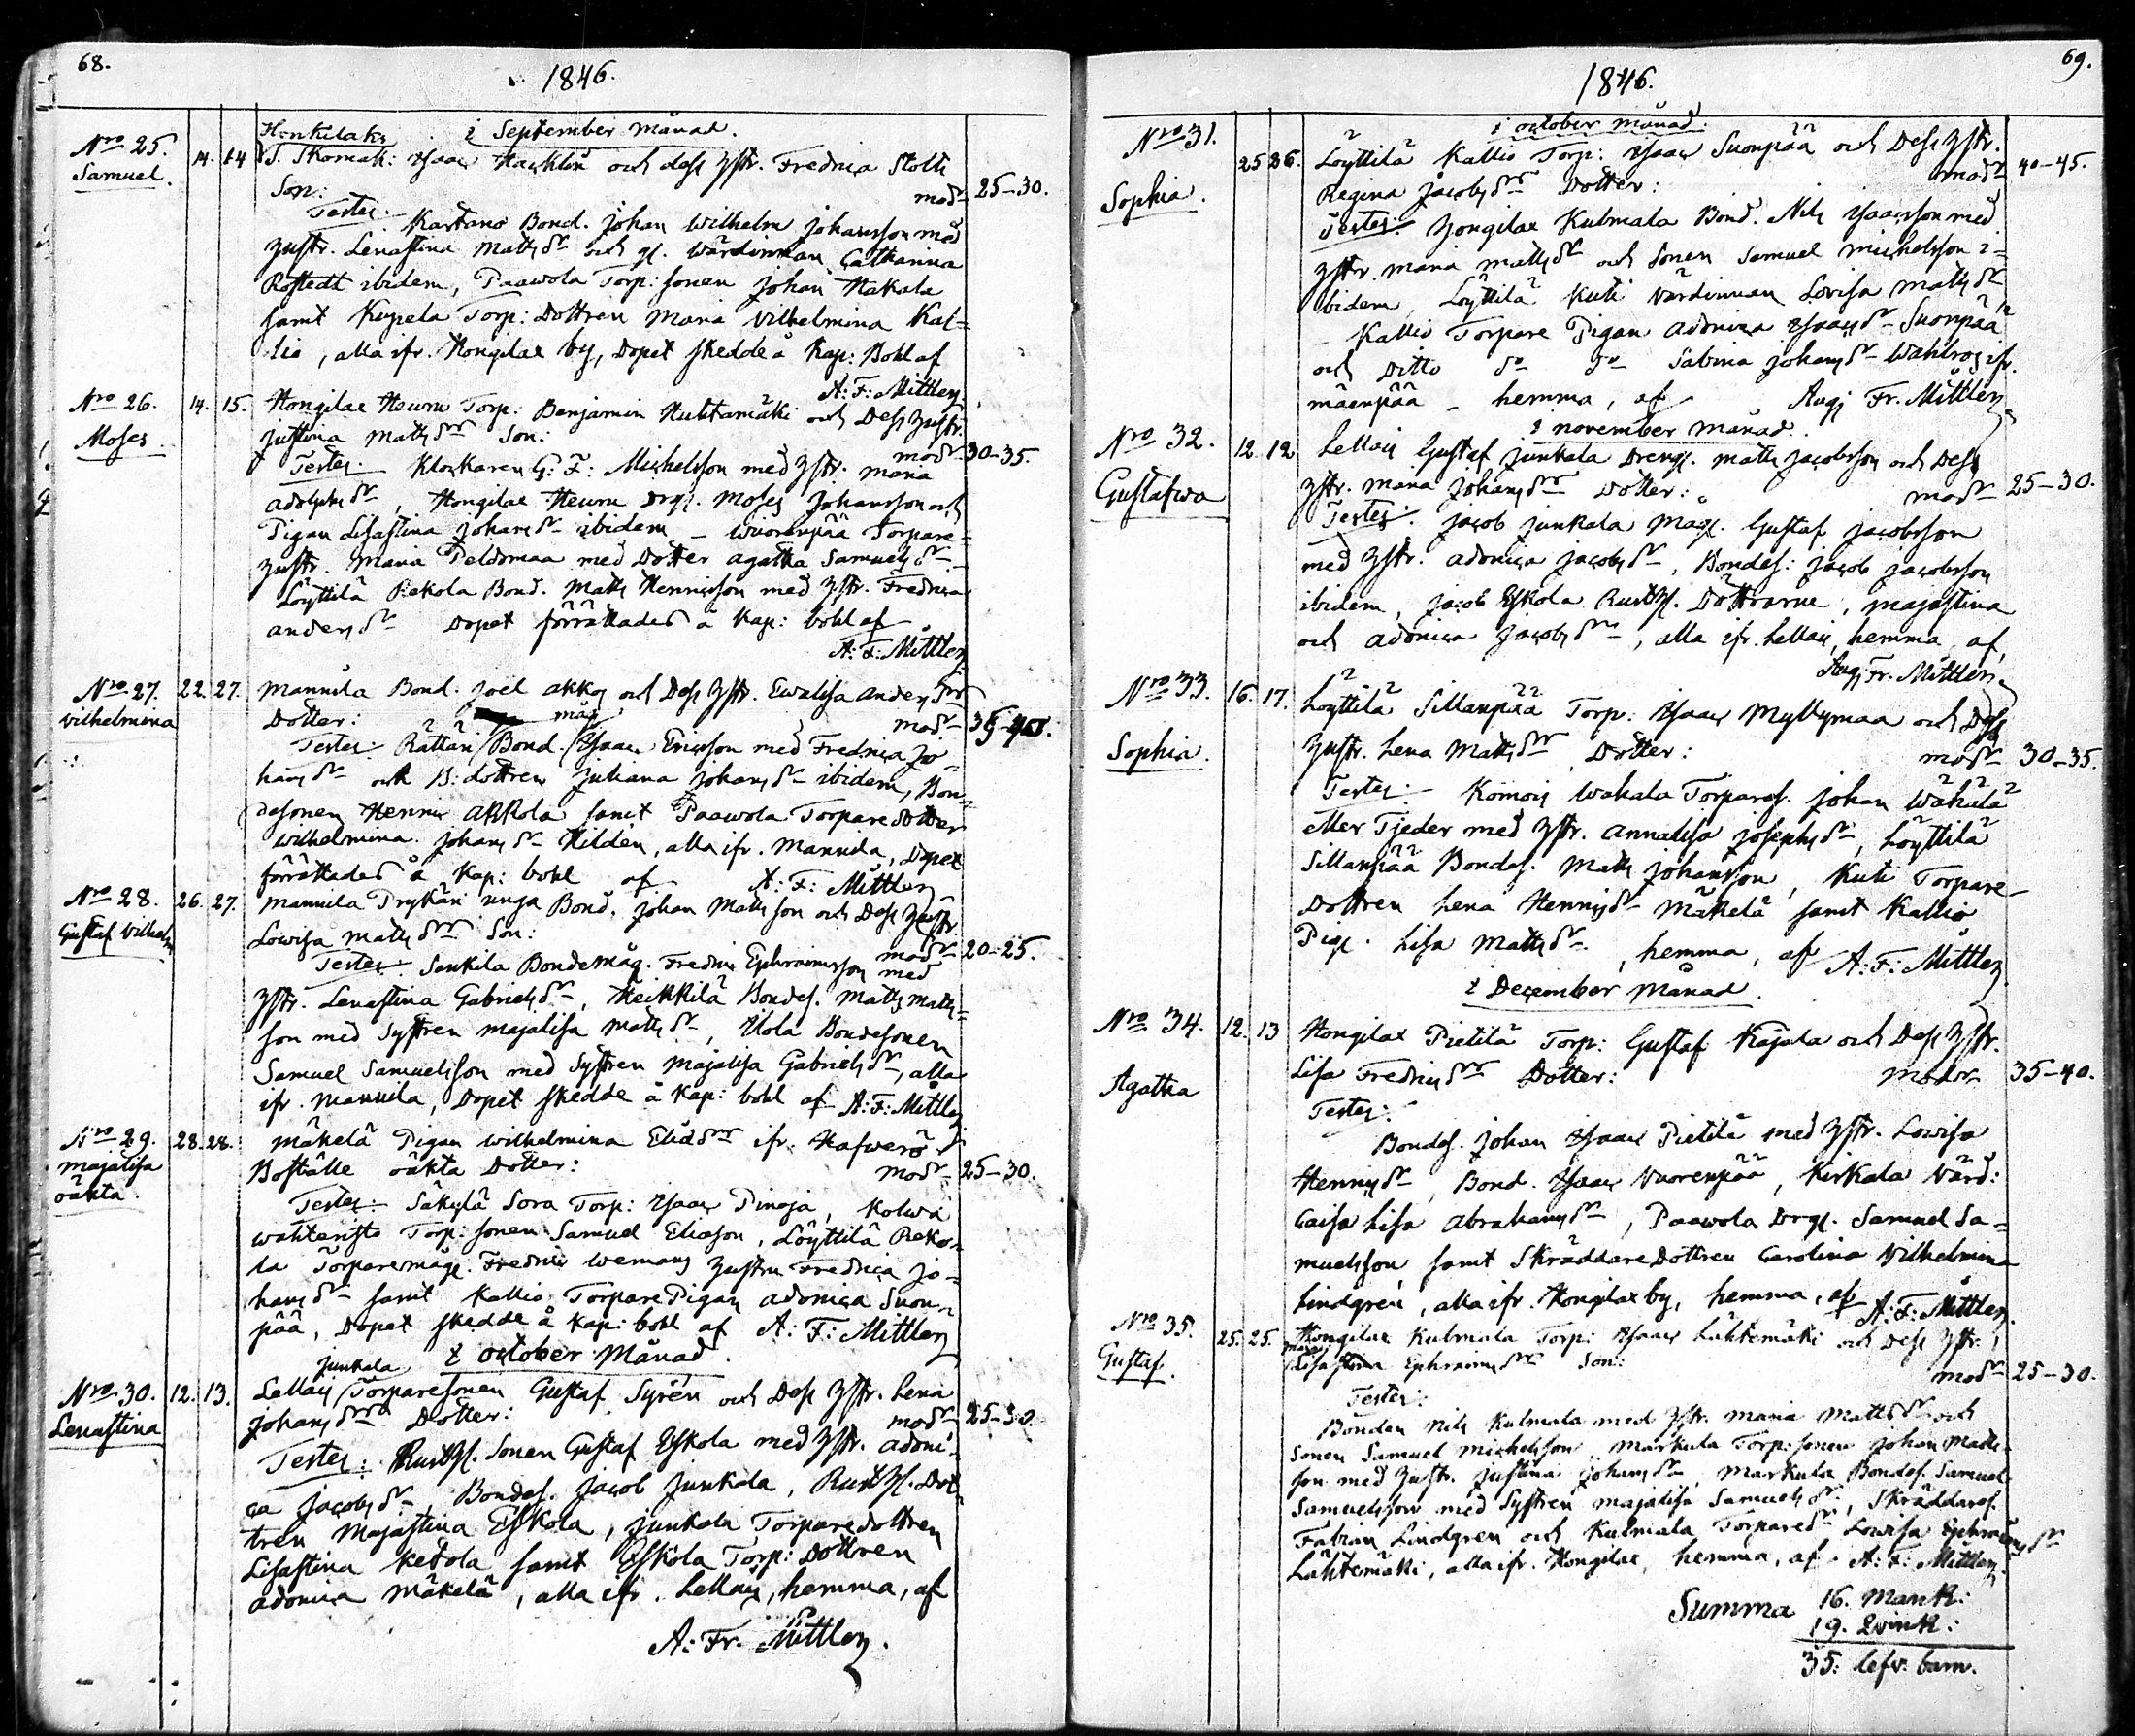 68.
1846.
Honkilaks. i September månad.
Nro 25. 14. 14 S. Skomak: Isaac Hacklin och dess hstr. Fredrica Stolt
Samuel. Son: modr 25-30.
Testes: Kartano Bond. Johan Wilhelm Johansson med
hustr. Lenastina Matts dr och gl. wärdinnan Catharina
Rostedt ibidem, Paawola Torp: sonen Johan Hakala
samt Kupela Torp: Dottren Maria Vilhelmina Kal=
lio, alla ifr. Hongilax by, Dopet skedde å Kap: Bohl af
A: F: Mittler
Nro 26. 14. 15. Hongilax Heuru Torp: Benjamin Huhtamäki och Dess hustr.
Moses. Justina Matts dr Son: modr 30-35.
Testes: Klockaren G: F: Michelsson med hstr. Maria
Adolphs dr, Hongilax Heuru Drgl. Moses Johansson och
Pigan Lisastina Johans dr ibidem - Wuorenpää Torpare-
hustr. Maria Peldomaa med Dotter Agatha Samuels dr -
Löyttilä Rekola Bond. Matts Henricsson med hstr. Fredrica
Anders dr Dopet förrättades å Kap: bohl af
A: F: Mittler
Nro 27. 22. 27. Mannila Bond. Joel Akkos och Dess hstr. Ewalisa Anders dr
Wilhelmina Dotter: modr 35-40.
Testes: Rättäri Bond. måg Isaac Ericsson med Fredrica Jo=
hans dr och B: dottren Juliana Johans dr ibidem, Bon=
desonen Henric Akkola samt Paawola Torpare dotter
Wilhelmina Johans dr Hildén, alla ifr. Mannila, Dopet
förrättades å Kap: bohl af A: F: Mittler
Nro 28. 26. 27. Mannila Prykäri unga Bond. Johan Matts son och Dess hustr.
Gustaf Vilhelm Lowisa Matts dr Son: modr 20-25.
Testes: Sankila Bondemåg. Fredric Ephraimsson med
hstr. Lenastina Gabriels dr, Heikkilä Bondes. Matts Matts=
son med Systren Majalisa Matts dr, Ilola Bondesonen
Samuel Samuelsson med Systren Majalisa Gabriels dr, alla
ifr. Mannila, Dopet skedde å Kap: bohl af A: F: Mittler
Nro 29. 28. 28. Mäkelä Pigan Wilhelmina Elias dr ifr. Hafwerö
Majalisa Boställe oäkta Dotter: modr 25-30.
oäkta. Testes: Säkylä Sora Torp: Isaac Pinoja, Kolwa
wahteristo Torp: sonen Samuel Eliasson, Löyttilä Reko=
la Torparemåg. Fredric Wemans hustru Fredrica Jo=
hans dr samt Kallio Torpare Pigan Adonica Suon=
pää, Dopet skedde å Kap: bohl af A: F: Mittler
i october Månad.
Nro 30. 12. 13. Lellais Junkala Torparesonen Gustaf Syrén och Dess hstr. Lena
Lenastina Johans dr Dotter: modr 25-30.
Testes: Rusth. Sonen Gustaf Eskola med hstr. Adoni=
ca Jacobs dr, Bondes. Jacob Junkala, Rusth. Dot=
tren Majastina Eskola, Junkala Torpare dottren
Lisastina Ketola samt Eskola Torp: Dottren
Adonica Mäkelä, alla ifr. Lellais, hemma, af
A: Fr. Mittler.
69.
1846.
i october månad.
Nro 31. 25 26. Löyttilä Kallio Torp: Isaac Suonpää och Dess hstr.
Sophia. Regina Jacobs dr Dotter: modr 40-45.
Testes: Hongilax Kulmala Bond. Nils Isacsson med
hstr. Maria Matts dr och Sonen Samuel Michelsson i=
bidem, Löyttilä Kuti wärdinnan Lovisa Matts dr
Kallio Torpare Pigan Adonica Isaacs dr Suonpää
och Ditto do do Sabina Johans dr Wahlros ifr.
mäenpää - hemma, af Aug: Fr. Mittler
i november månad.
Nro 32. 12. 12 Lellais Gustaf Junkala Drengl. Matts Jacobsson och Dess
Gustafwa hstr. Maria Johans dr Dotter: modr 25-30.
Testes: Jacob Junkala Mågl. Gustaf Jacobsson
med hstr. Adonica Jacobs dr, Bondes: Jacob Jacobsson
ibidem, Jacob Eskola Rusth. Döttrarne, Majastina
och Adonica Jacobs dr, alla ifr. Lellais, hemma, af,
Aug: Fr. Mittler
Nro 33. 16. 17. Löyttilä Sillanpää Torp: Isaac Myllymaa och Dess
Sophia. hustr. Lena Matts dr Dotter: modr 30-35.
Testes: Komois Wahala Torpares. Johan Wähälä
eller Tjeder med hstr. Annalisa Josephs dr, Löyttilä
Sillanpää Bondes. Matts Johansson, Kuti Torpare-
Dottren Lena Henrics dr Mäkelä samt Kallio
Pigl. Lisa Matts dr, hemma, af A: F: Mittler
i December Månad.
Nro 34. 12. 13 Hongilax Pietilä Torp: Gustaf Kajala och Dess hstr.
Agatha Lisa Fredrics dr Dotter: Modr 35-40.
Testes:
Bondes. Johan Isaac Pietilä med hstr. Lowisa
Henrics dr, Bond. Isaac Vuorenpää, Kirkala Wärd:
Caisa Lisa Abrahams dr, Paawola Drgl. Samuel Sa=
muelsson samt Skräddare Dottren Carolina Wilhelmina
Lindgrén, alla ifr. Hongilax by, hemma, af A: F: Mittler
Nro 35. 25. 25. Hongilax Kulmala Torp: Isaac Lähtemäki och Dess hstr.
Gustaf. Lisastina Ephraims dr Son: modr 25-30.
Testes:
Bonden Nils Kulmala med hstr. Maria Matts dr och
Sonen Samuel Michelsson, Markula Torp: sonen Johan Matts=
son med hustr. Justina Johans dr, Markula Bondes. Samuel
Samuelsson med Systren Majalisa Samuels dr, Skräddares.
Fabian Lindgren och Kulmala Torpare dr Lowisa Ephraims dr
Lähtemäki, alla ifr. Hongilax, hemma, af A: F: Mittler.
Summa 16. Mank:
19. Qvink:
35: lefv: barn.